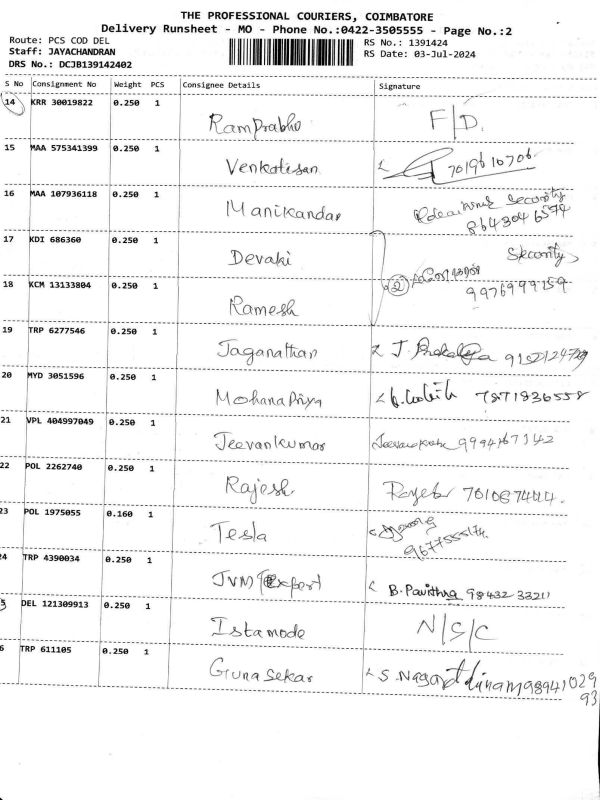 THE PROFESSIONAL COURIERS, COIMBATORE
Delivery Runsheet - MO - Phone No.:0422-3505555 - Page No.:2
Route: PCS COD DEL
Staff: JAYACHANDRAN
DRS No.: DCJB139142402
RS No.: 1391424
RS Date: 03-Jul-2024
S No Consignment No Weight PCS Consignee Details Signature
14 KRR 30019822 0.250 1
Ram Prabhu F/D.
15 MAA 575341399 0.250 1
Venkatesan 7019610706
16 MAA 107936118 0.250 1
Manikandan security
8643046574
17 KDI 686360 0.250 1
Devaki Security
18 KCM 13133804 0.250 1
Ramesh 2 9976999159
19 TRP 6277546 0.250 1
Jaganathan J.
20 MYD 3051596 0.250 1
Mohana Priya 7871836558
21 VPL 404997049 0.250 1
Jeevankumar 9994167342
22 POL 2262740 0.250 1
Rajesh
23 POL 1975055 0.160 1
Tesla
24 TRP 4390034 0.250 1
JVM Expert B. Pavithra 98432 33211
5 DEL 121309913 0.250 1
Istamode N/S/C
6 TRP 611105 0.250 1
Guna Sekar S. Nagarathinam 98941029
93